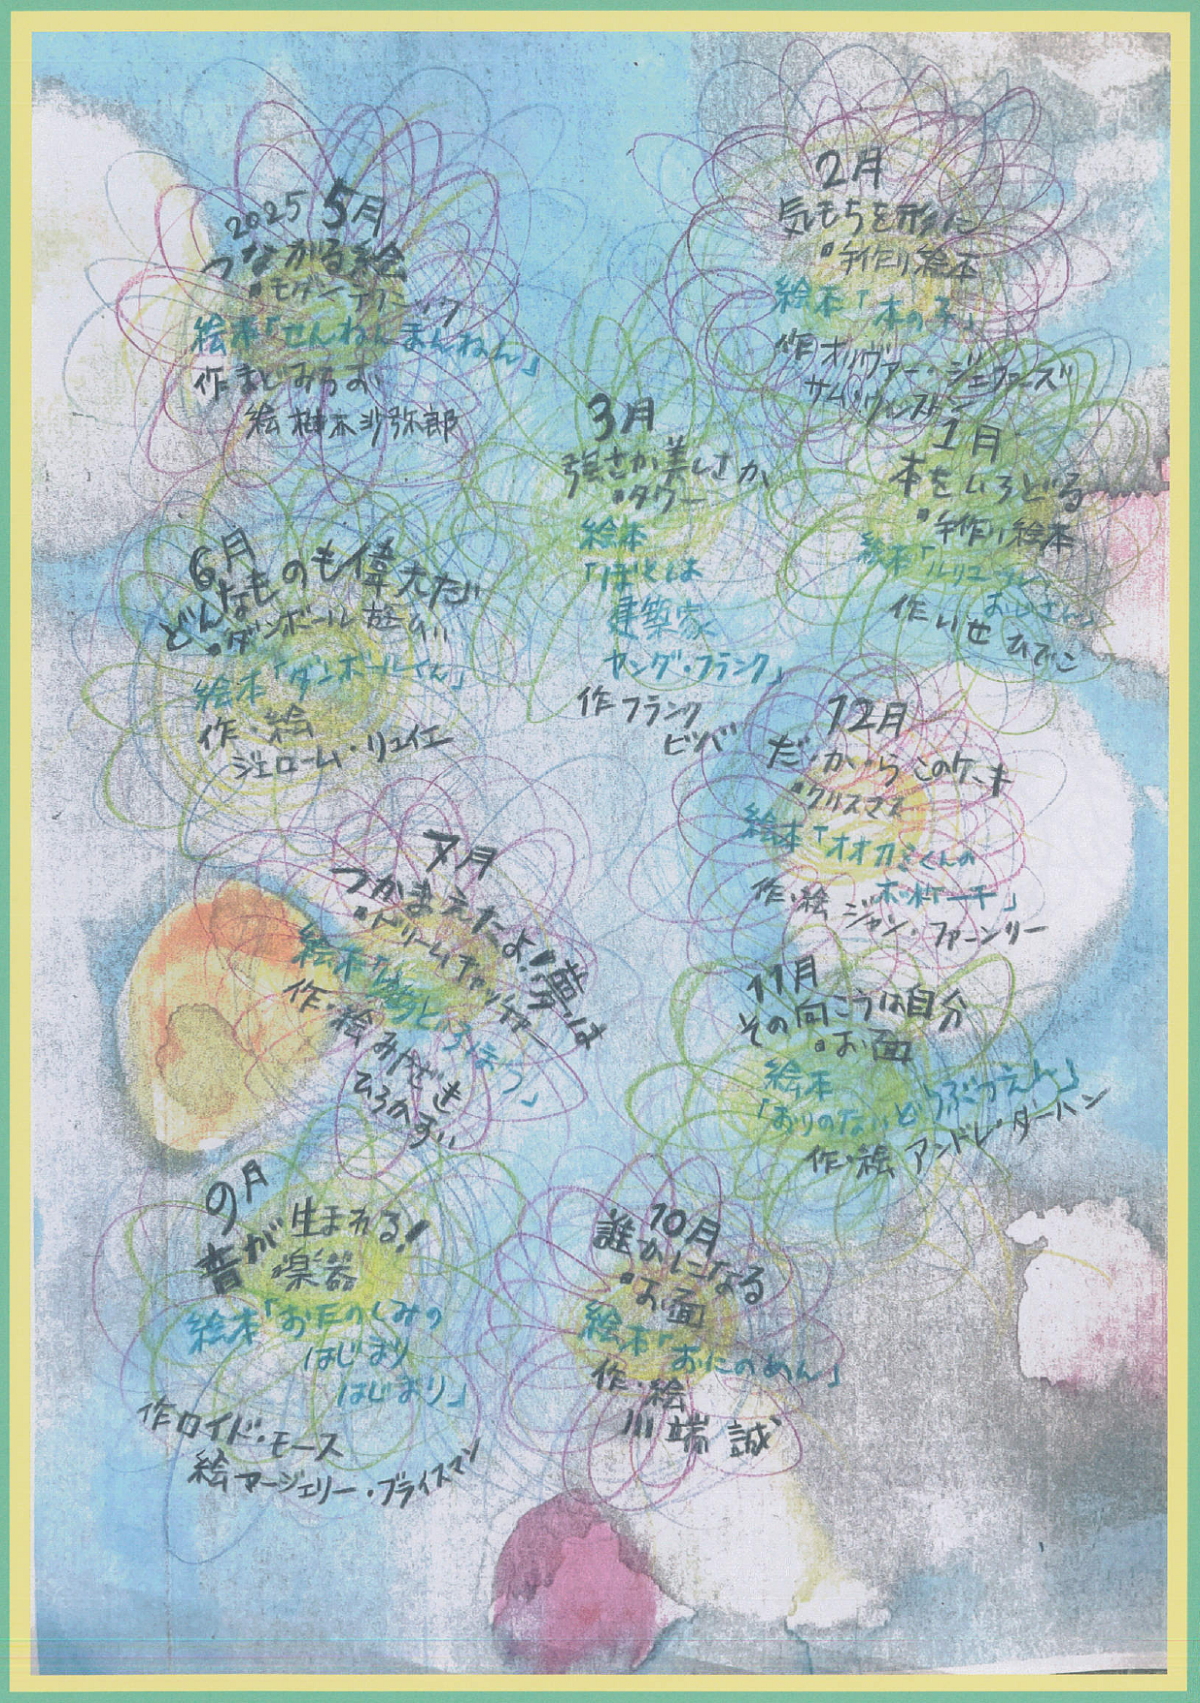 2025 5月
つながる絵
•モダンテクニック
絵本「せんねんまんねん」
作 まどみちお
絵 柚木沙弥郎
6月
どんなものも偉大だ
•ダンボール遊び
絵本「ダンボールくん」
作・絵
ジェローム・リュイエ
7月
つかまえたよ!夢は
•ドリームキャッチャー
絵本
作・絵 みやざき
ひろかず
9月
音が生まれる!
楽器
絵本「おたのしみの
はじまり
はじまり」
作 ロイド・モース
絵 マージェリー・プライスマン
10月
誰かになる
•お面
絵本「おにのめん」
作・絵
川端 誠
11月
その向こうは自分
•お面
絵本
「おりのないどうぶつえん」
作・絵 アンドレ・ダーハン
12月
だ・か・らこのケーキ
•クリスマス
絵本「オオカミくんの
ホットケーキ」
作・絵 ジャン・ファーンリー
1月
本をいろどる
•手作り絵本
絵本「ルリユール
おじさん」
作 いせひでこ
2月
気もちを形に
•手作り絵本
絵本「本の子」
作 オリヴァー・ジェファーズ
サム・ウィンストン
3月
強さか美しさか
•タワー
絵本
「ぼくは
建築家
ヤング・フランク」
作 フランク
ビバ